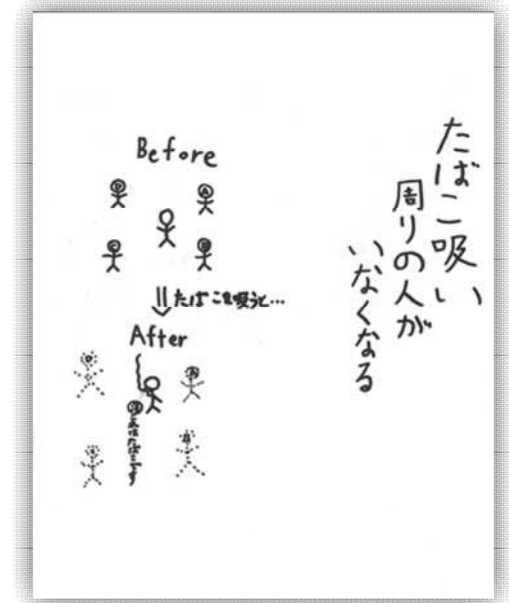 たばこ吸い
周りの人が
いなくなる
Before
たばこを吸うと…
After